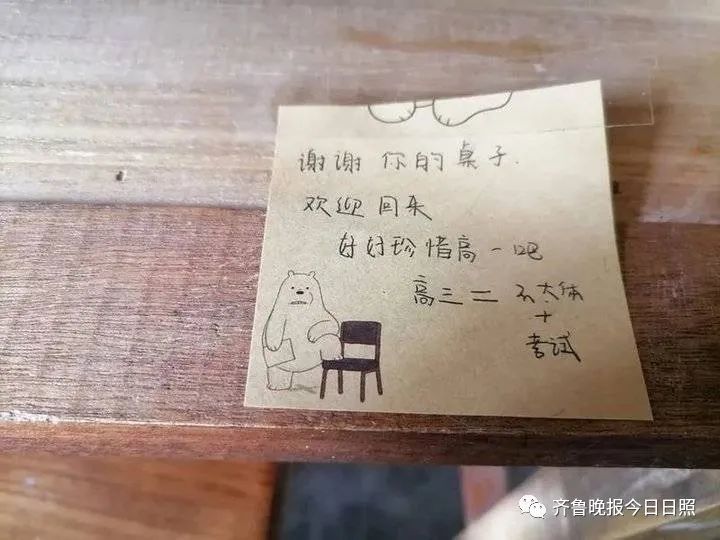 谢谢 你的桌子.
欢迎回来
好好珍惜高一吧
高三二 不大休
+
考试
齐鲁晚报今日日照